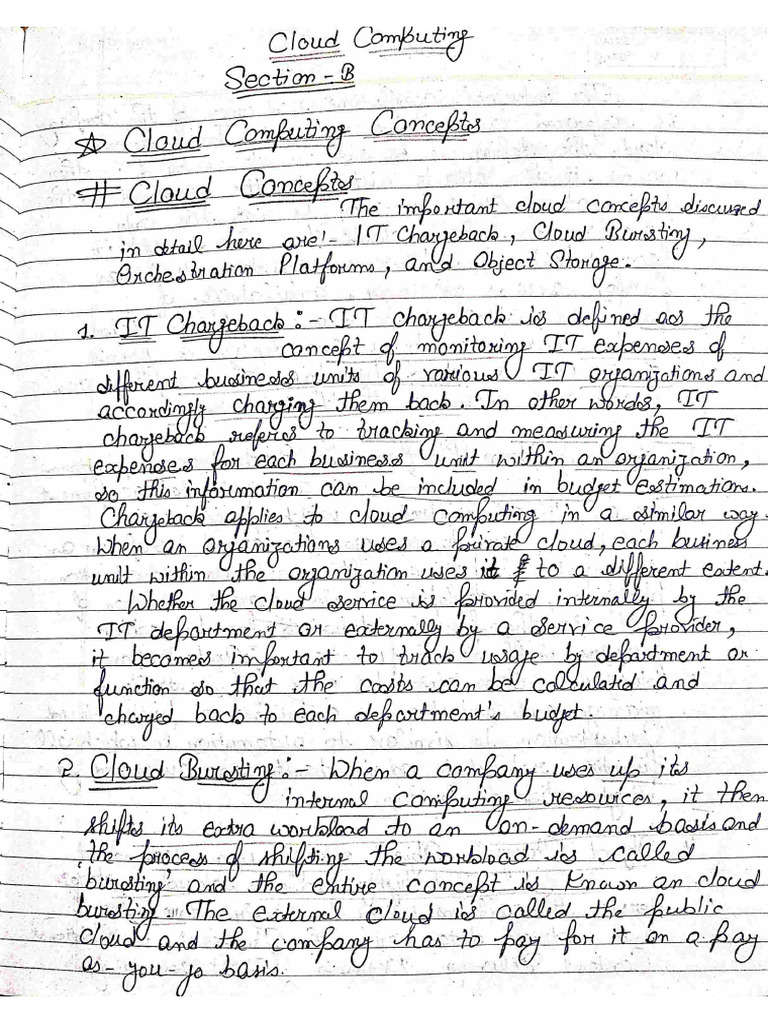 Cloud Computing
Section - B
☆ Cloud Computing Concepts
# Cloud Concepts
The important cloud concepts discussed
in detail here are:- IT Chargeback, Cloud Bursting,
Orchestration Platforms, and Object Storage.
1. IT Chargeback :- IT chargeback is defined as the
concept of monitoring IT expenses of
different business units of various IT organizations and
accordingly charging them back. In other words, IT
chargeback refers to tracking and measuring the IT
expenses for each business unit within an organization,
so this information can be included in budget estimations.
Chargeback applies to cloud computing in a similar way.
When an organizations uses a private cloud, each business
unit within the organization uses it to a different extent.
Whether the cloud service is provided internally by the
IT department or externally by a service provider,
it becomes important to track usage by department or
function so that the costs can be calculated and
charged back to each department's budget.
2. Cloud Bursting :- When a company uses up its
internal computing resources, it then
shifts its extra workload to an on-demand basis and
the process of shifting the workload is called
'bursting' and the entire concept is known an cloud
bursting. The external cloud is called the public
cloud and the company has to pay for it on a pay
as-you-go basis.